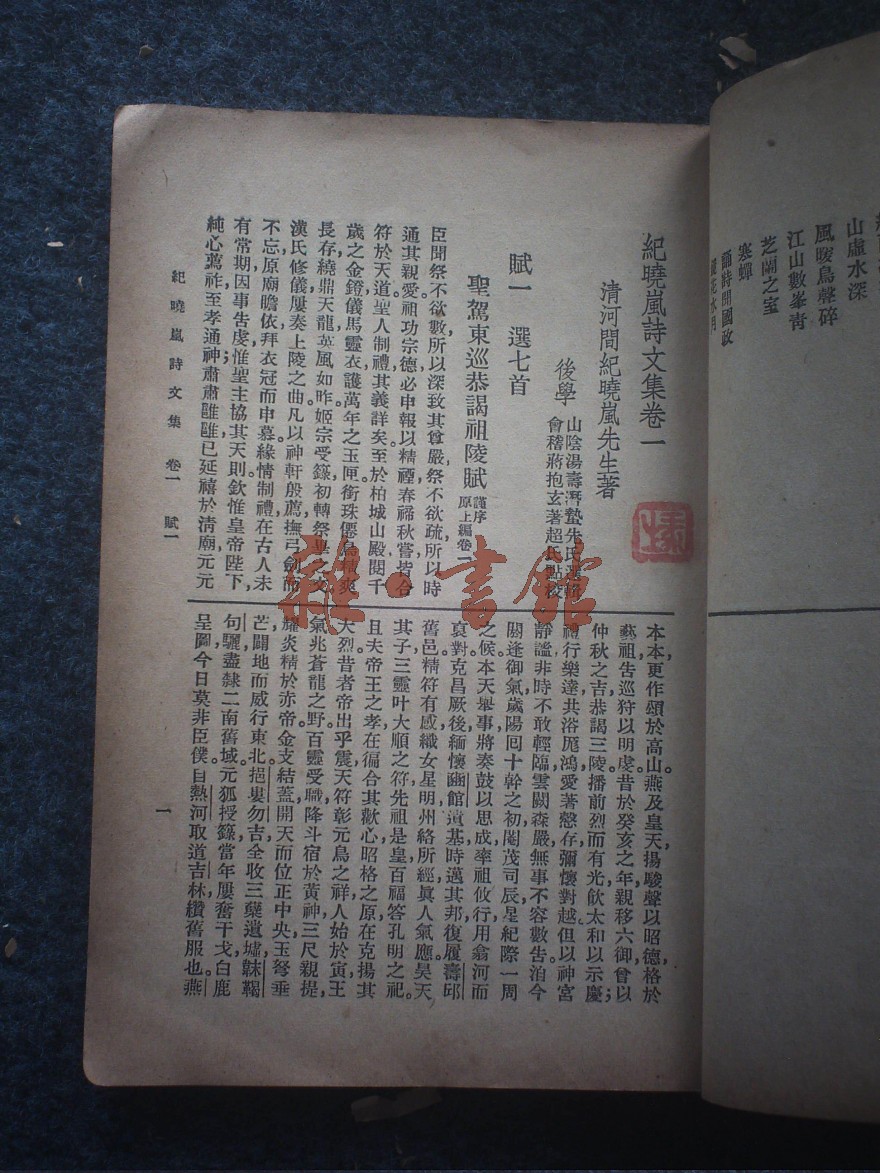 紀曉嵐詩文集卷一
清河間紀曉嵐先生著
後學
山陰湯壽潛蟄朱氏選輯
會稽蔣抱玄著超氏點校
賦一 選七首
聖駕東巡恭謁祖陵賦
謹序
原上編卷一
臣聞祭不欲數所以深致其尊嚴祭不欲疏所以時
通其親愛祖功宗德必申報以精禋春禘秋嘗皆合
符於天道聖人制禮其義詳矣至於柏城山殿閱千
歲之金鐙儀馬靈衣護萬年之玉匣銜珠僊鳥精爽
長存繞鼎天龍英風如昨姬宗受籙初轉祭畢之文
漢氏修儀屢奏上陵之曲凡以神軒般薦撫弓劍而
不忘原廟瞻依拜衣冠而申慕緣情制禮在古人未
有常期因事告虔惟聖主協其天則欽惟皇帝陛下,
純心薦祚至孝通神肅肅雝雝已延禧於清廟元元
本本,更作頌於高山燕及皇天揚駿聲以昭德格於
藝祖告巡狩以明虔昔於癸亥之年親移六御曾以
仲秋之吉恭謁三陵播前烈而有光飲太和以示慶;
禮行樂達共浴厖鴻愛著慤存彌懷對越但以神宮
靜謐非時不敢輕臨雲闕森嚴無事不容數告洎今
閼逢御氣歲陽囘十幹之初閹茂司辰星紀際一周
之候本天舉事將奏鼓以思成率祖攸行用翕河而
裒對克昌厥後緬懷豳館遺基時邁其邦復履壽邱
舊邑精符有感織女星明州絡所經眞人氣應昊天
其子三靈叶大順之符先祖是皇百福答孔明之祀。
且夫帝王之孝在徧合其歡心昭格之原在克揚其
大烈昔者帝出乎震天符彰元鳥之祥人始於寅王
氣兆蒼龍之野百靈受職降斗宿於黃神三尺親提,
耀炎精於赤帝金支結蓋開天而位正中央玉弩垂
芒闢地而威行東北挹婁勿吉全收三蘗遺墟靺鞨
句驪盡隸二南舊域元狐授籙當年屢奮干戈白鹿
呈圖今日莫非臣僕自熱河取道吉林纘舊服也燕
紀曉嵐詩文集 卷一 賦一
一
山虛水深
風暖鳥聲碎
江山數峯靑
芝蘭之室
寒蟬
雜·書館